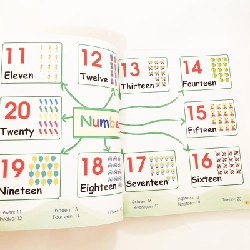 11
Eleven
12
Twelve
13
Thirteen
14
Fourteen
20
Twenty
Numbe
15
Fifteen
19
Nineteen
18
Eighteen
17
Seventeen
16
Sixteen